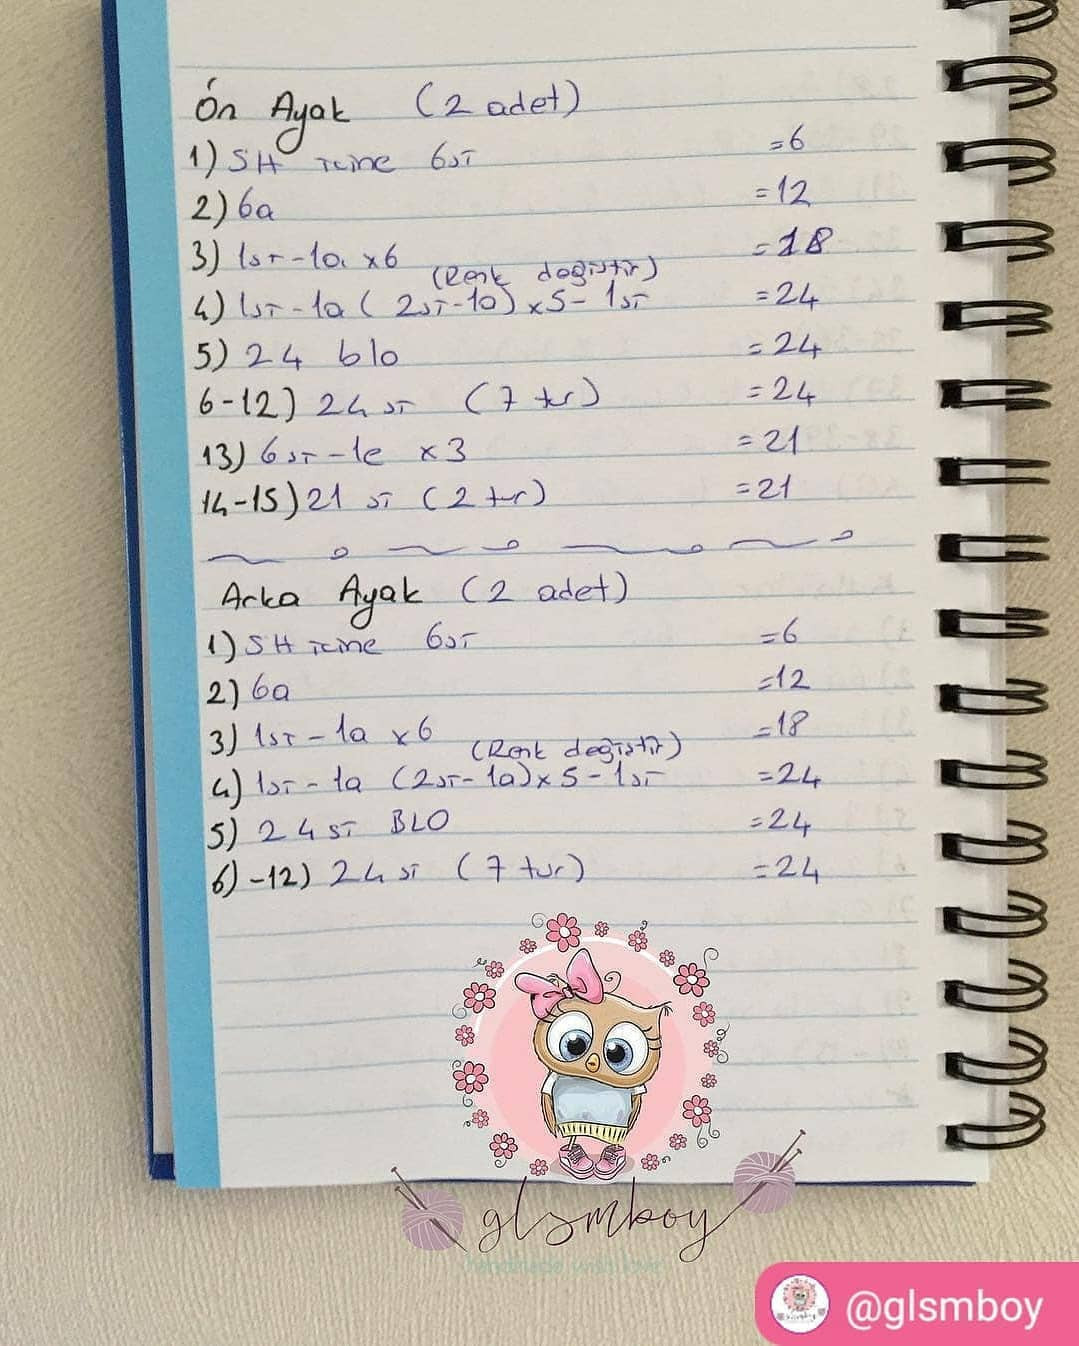 Ön Ayak (2 adet)
1) SH icine 6sı =6
2) 6a =12
3) 1sı-1a x6 =18
(Renk değiştir)
4) 1sı-1a (2sı-1a)x5-1sı =24
5) 24 blo =24
6-12) 24 sı (7 tur) =24
13) 6sı-1e x3 =21
14-15) 21 sı (2 tur) =21
Arka Ayak (2 adet)
1) SH icine 6sı =6
2) 6a =12
3) 1sı-1a x6 =18
(Renk değiştir)
4) 1sı-1a (2sı-1a)x5-1sı =24
5) 24 sı BLO =24
6)-12) 24 sı (7 tur) =24
glsmboy
handmade with love
@glsmboy